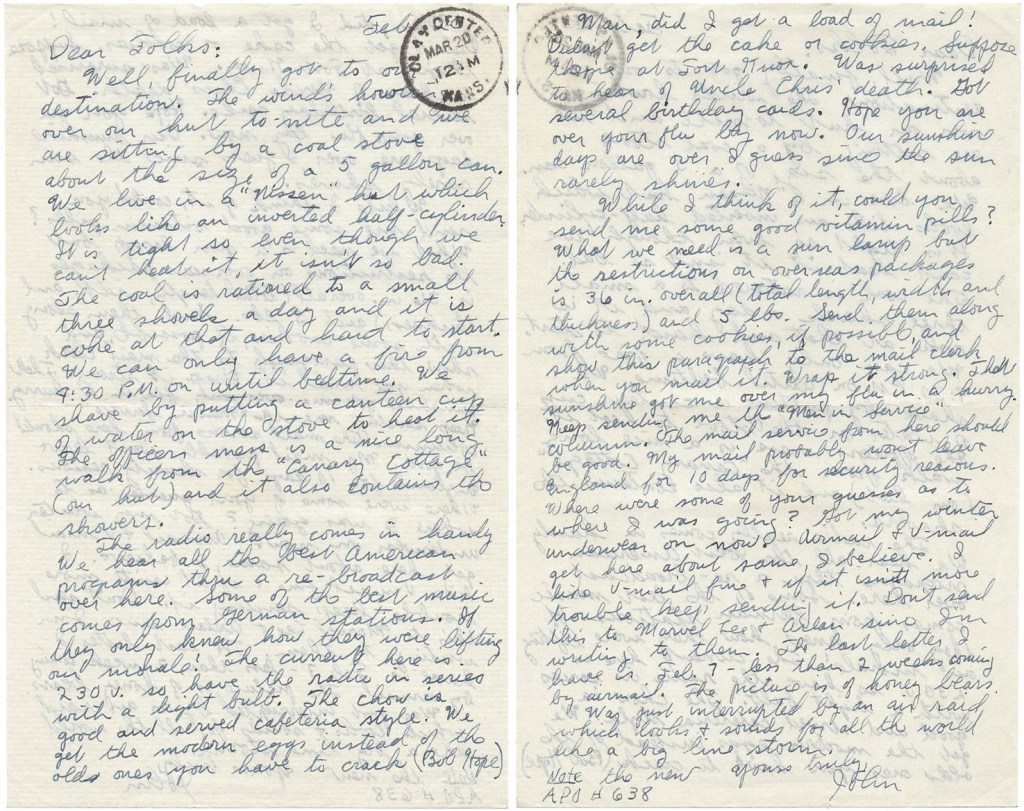 Feb
CLAY CENTER
MAR 20
12 M
KANS.
Dear Folks:
Well finally got to our
destination. The wind's howlin
over our hut to-nite and we
are sitting by a coal stove
about the size of a 5 gallon can.
We live in a "Nissen" hut which
looks like an inverted half-cylinder.
It is tight so even though we
can't heat it, it isn't so bad.
The coal is rationed to a small
three shovels a day and it is
coke at that and hard to start.
We can only have a fire from
4:30 P.M. on until bedtime. We
shave by putting a canteen cup
of water on the stove to heat it.
The officers mess is a nice long
walk from the "Canary Cottage"
(our hut) and it also contains the
showers.
The radio really comes in handy
We hear all the best American
programs thru a re-broadcast
over here. Some of the best music
comes from German stations. If
they only knew how they were lifting
our morale! The current here is
230 V. so have the radio in series
with a light bulb. The chow is
good and served cafeteria style. We
get the modern eggs instead of the
olds ones you have to crack (Bob Hope)
Man, did I get a load of mail!
Didn't get the cake or cookies. Suppose
they're at Fort Knox. Was surprised
to hear of Uncle Chris' death. Got
several birthday cards. Hope you are
over your flu by now. Our sunshine
days are over I guess since the sun
rarely shines.
While I think of it, could you
send me some good vitamin pills?
What we need is a sun lamp but
the restrictions on overseas packages
is; 36 in. overall (total length, width and
thickness) and 5 lbs. Send them along
with some cookies, if possible, and
show this paragraph to the mail clerk
when you mail it. Wrap it strong. That
sunshine got me over my flu in a hurry.
Keep sending me th "Men in Service"
column. The mail service from here should
be good. My mail probably won't leave
England for 10 days for security reasons.
Where were some of your guesses as to
where I was going? Got my winter
underwear on now. Airmail & V-mail
get here about same, I believe. I
like V-mail fine & if it isn't more
trouble keep sending it. Don't send
this to Marvel Lee & Arlan since I'm
writing to them. The last letter I
have is Feb. 7 - less than 2 weeks coming
by airmail. The picture is of honey bears.
Was just interrupted by an air raid
which looks & sounds for all the world
like a big line storm.
Note the new yours truly,
APO # 638 John